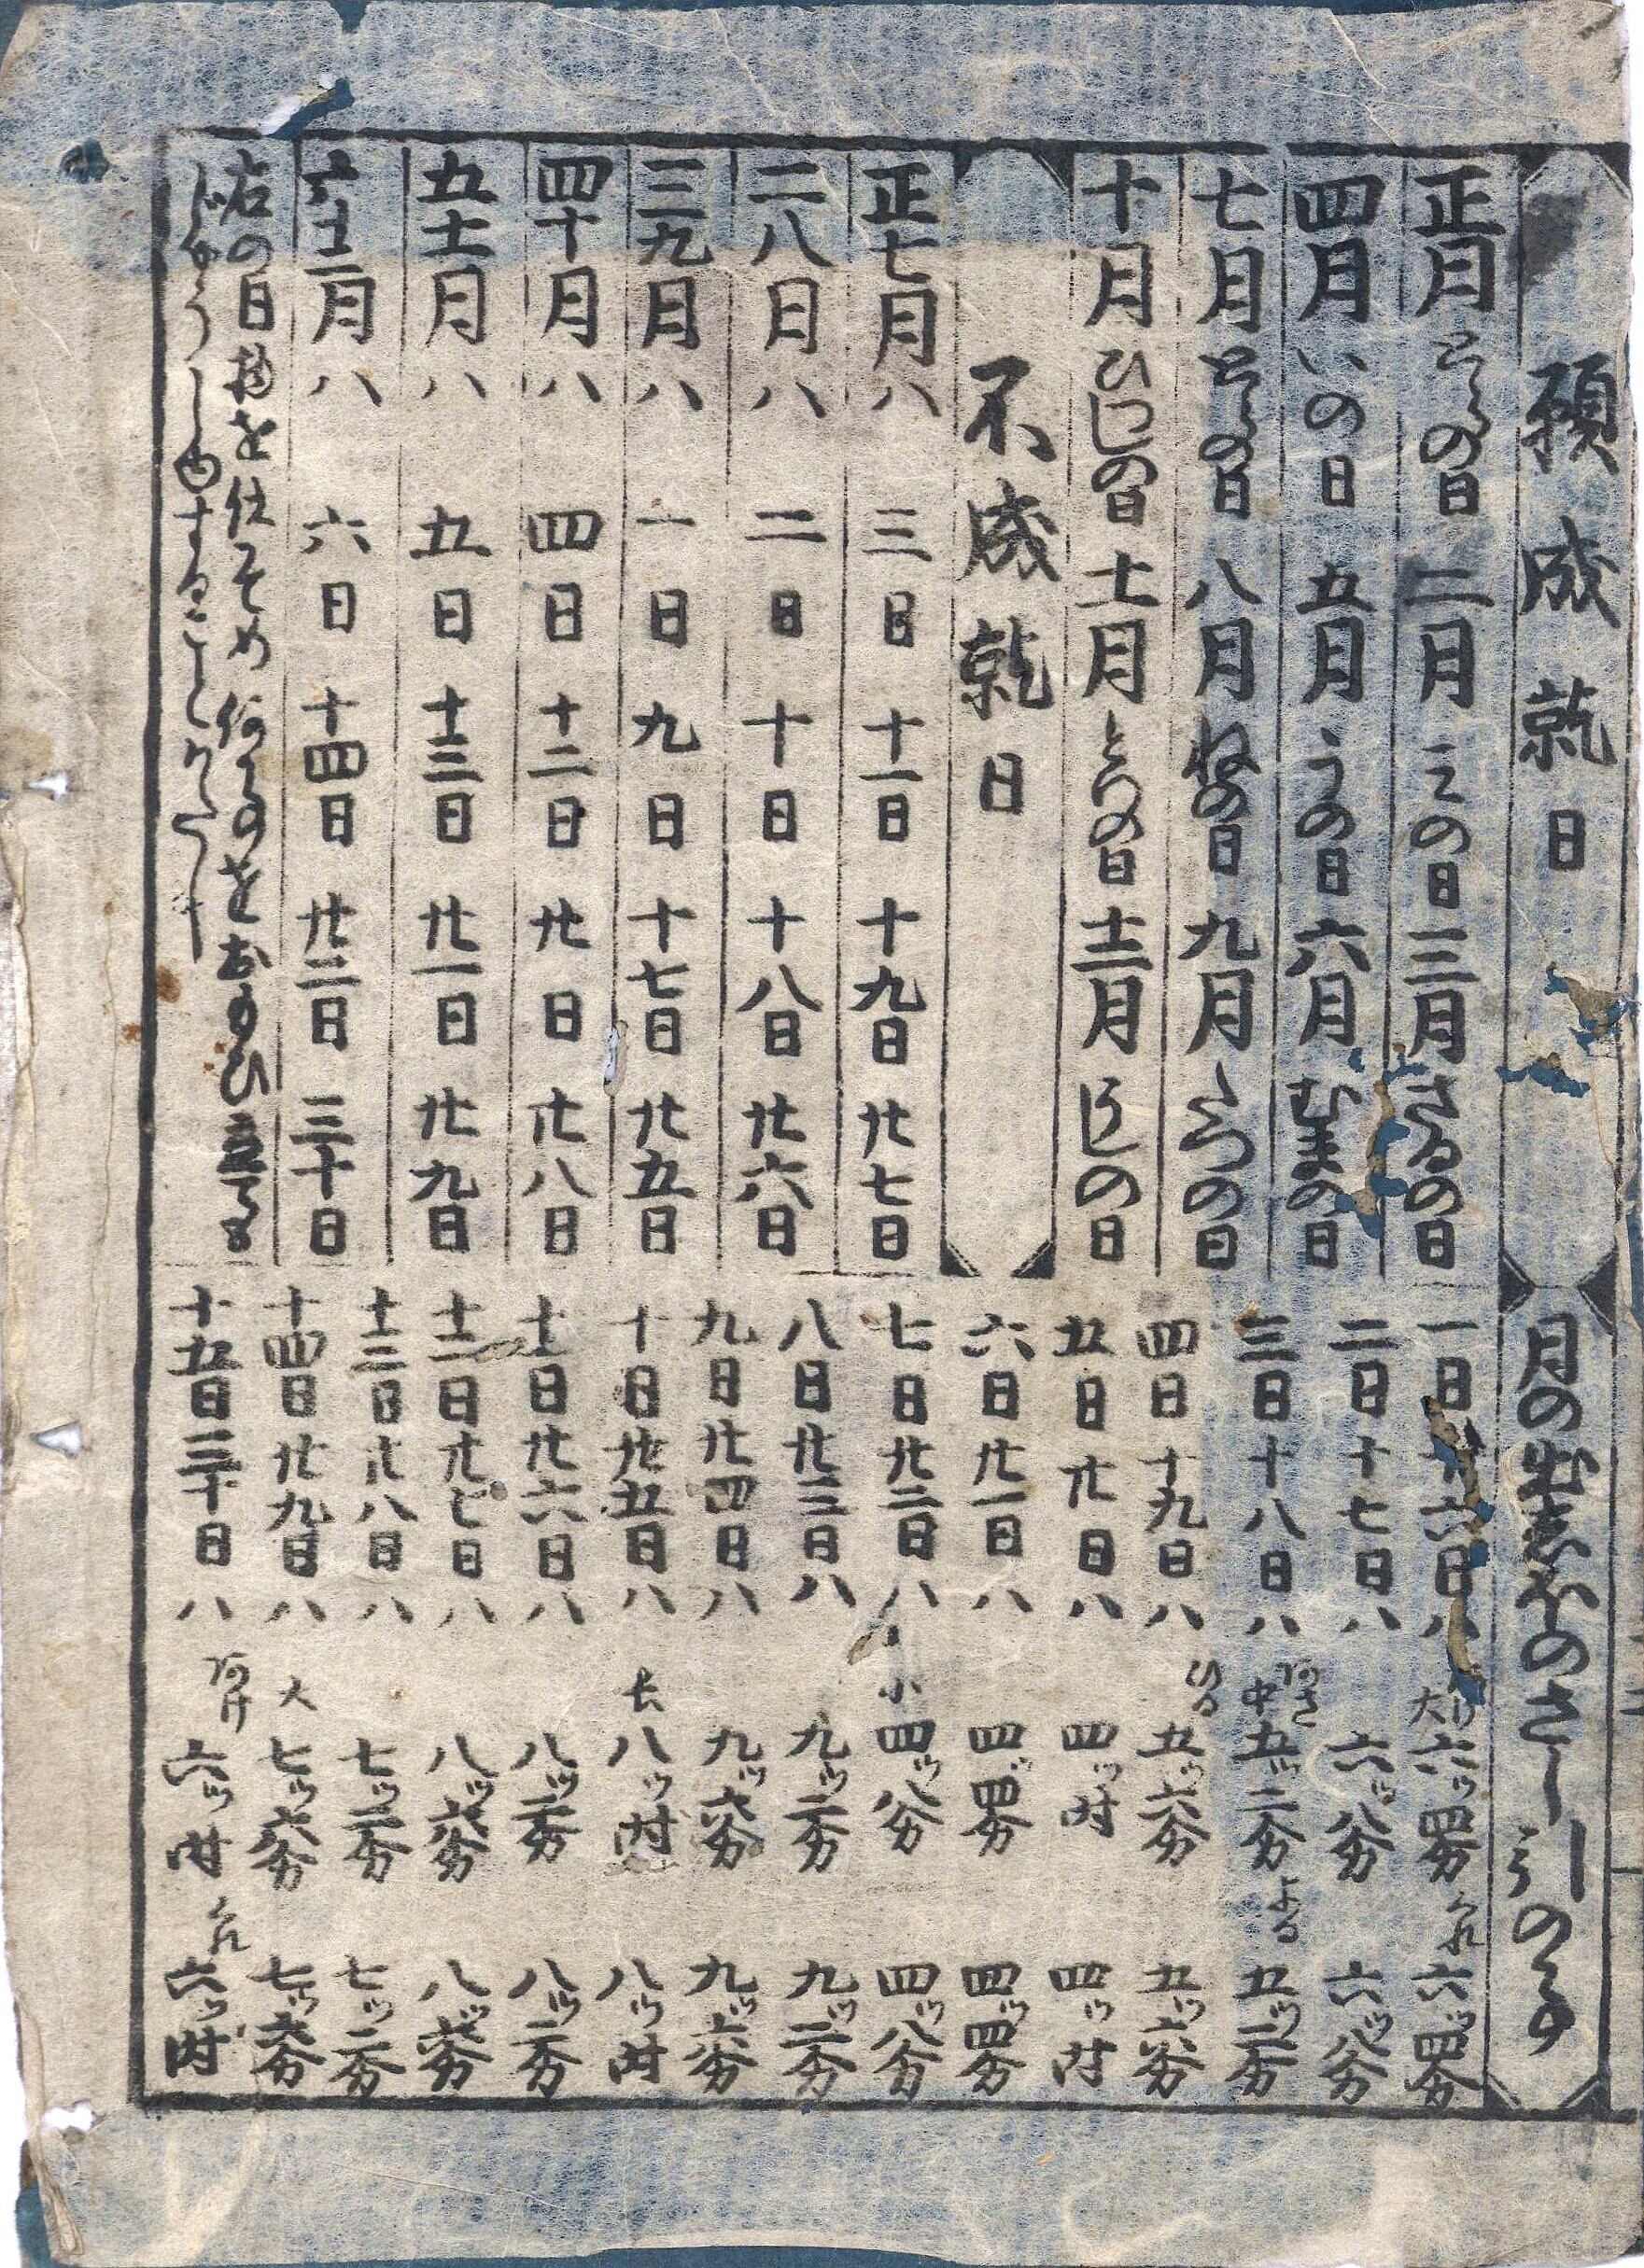 願成就日
正月とらの日 二月みの日 三月さるの日
四月いの日 五月うの日 六月むまの日
七月とらの日 八月ねの日 九月たつの日
十月ひつじの日 十一月とりの日 十二月うしの日
不成就日
正七月ハ 三日 十一日 十九日 廿七日
二八月ハ 二日 十日 十八日 廿六日
三九月ハ 一日 九日 十七日 廿五日
四十月ハ 四日 十二日 廿日 廿八日
五十一月ハ 五日 十三日 廿一日 廿九日
六十二月ハ 六日 十四日 廿二日 三十日
右の日物を仕そめ何事をおもひ立ても
じやうじゆすることかたし
月の出しほのさし引の事
一日十六日ハ 大六ツ四分 くれ六ツ四分
二日十七日ハ 六ツ八分 六ツ八分
三日十八日ハ あさ 中五ツ二分 よる五ツ二分
四日十九日ハ ひる五ツ六分 五ツ六分
五日廿日ハ 四ツ時 四ツ時
六日廿一日ハ 四ツ四分 四ツ四分
七日廿二日ハ 小四ツ八分 四ツ八分
八日廿三日ハ 九ツ二分 九ツ二分
九日廿四日ハ 九ツ六分 九ツ六分
十日廿五日ハ 長八ツ時 八ツ時
十一日廿六日ハ 八ツ二分 八ツ二分
十二日廿七日ハ 八ツ六分 八ツ六分
十三日廿八日ハ 七ツ二分 七ツ二分
十四日廿九日ハ 大七ツ六分 七ツ六分
十五日三十日ハ あけ六ツ時 くれ六ツ時